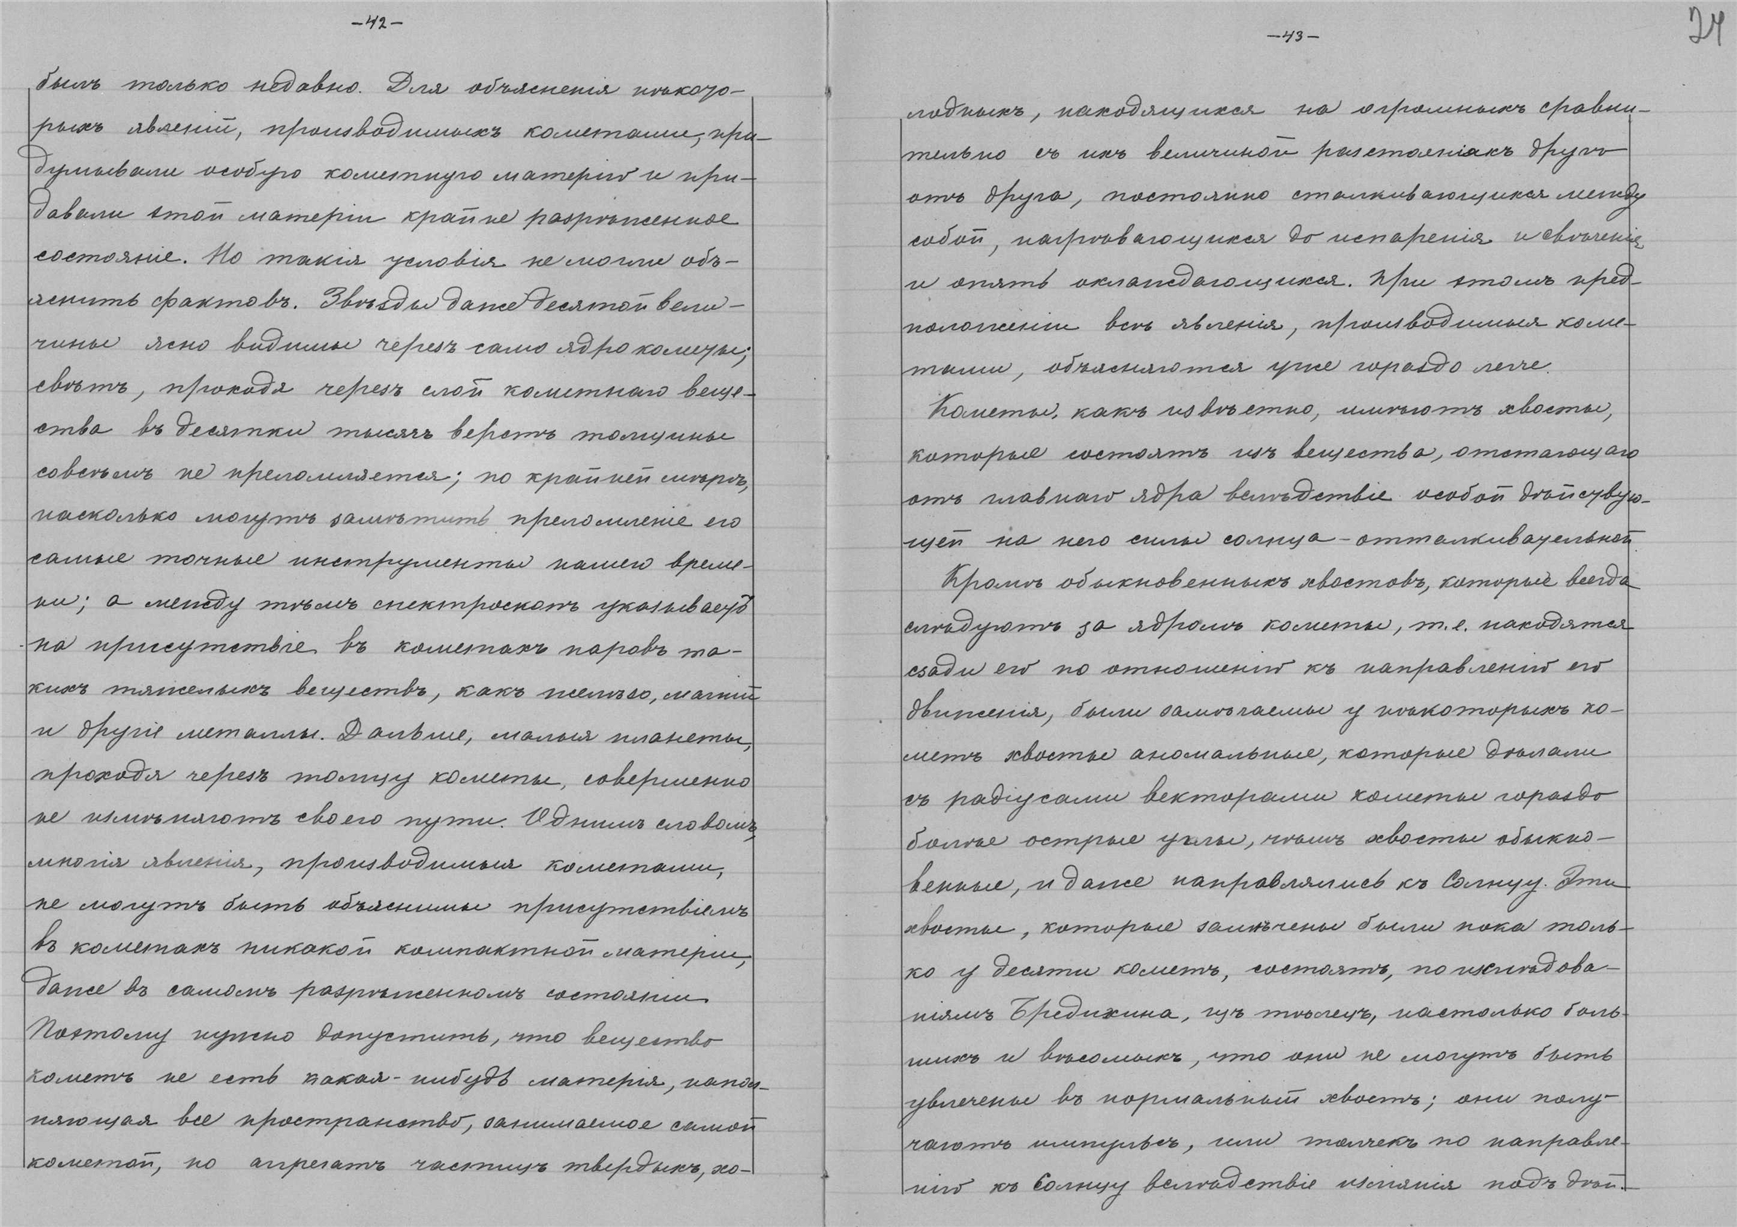 —42—
былъ только недавно. Для объясненія нѣкото-
рыхъ явленій, производимыхъ кометами, при-
думывали особую кометную матерію и при-
давали этой матеріи крайне разрѣженное
состояніе. Но такія условія не могли объ-
яснить фактовъ. Звѣзды даже десятой вели-
чины ясно видимы черезъ само ядро кометы;
свѣтъ, проходя черезъ слой кометнаго веще-
ства въ десятки тысячъ верстъ толщины
совсѣмъ не преломляется; по крайней мѣрѣ,
насколько могутъ замѣтить преломленіе его
самые точные инструменты нашего време-
ни; а между тѣмъ спектроскопъ указываетъ
на присутствіе въ кометахъ паровъ та-
кихъ тяжелыхъ веществъ, какъ желѣзо, магній
и другіе металлы. Дальше, малыя планеты,
проходя черезъ толщу кометы, совершенно
не измѣняютъ своего пути. Однимъ словомъ,
многія явленія, производимыя кометами,
не могутъ быть объяснимы присутствіемъ
въ кометахъ никакой компактной матеріи,
даже въ самомъ разрѣженномъ состояніи.
Поэтому нужно допустить, что вещество
кометъ не есть какая-нибудь матерія, напол-
няющая все пространство, занимаемое самой
кометой, но агрегатъ частицъ твердыхъ, хо-
—43—
24
лодныхъ, находящихся на огромныхъ сравни-
тельно съ ихъ величиной разстояніяхъ другъ
отъ друга, постоянно сталкивающихся между
собой, нагрѣвающихся до испаренія и свѣченія
и опять охлаждающихся. При этомъ пред-
положеніи всѣ явленія, производимыя коме-
тами, объясняются уже гораздо легче.
Кометы, какъ извѣстно, имѣютъ хвосты,
которые состоятъ изъ вещества, отстающаго
отъ главнаго ядра вслѣдствіе особой дѣйствую-
щей на него силы солнца - отталкивательной.
Кромѣ обыкновенныхъ хвостовъ, которые всегда
слѣдуютъ за ядромъ кометы, т.е. находятся
сзади его по отношенію къ направленію его
движенія, были замѣчаемы у нѣкоторыхъ ко-
метъ хвосты аномальные, которые дѣлали
съ радіусами векторами кометы гораздо
болѣе острые углы, чѣмъ хвосты обыкно-
венные, и даже направлялись къ Солнцу. Эти
хвосты, которые замѣчены были пока толь-
ко у десяти кометъ, состоятъ, по изслѣдова-
ніямъ Бредихина, изъ тѣлецъ, настолько боль-
шихъ и вѣсомыхъ, что они не могутъ быть
увлечены въ нормальный хвостъ; они полу-
чаютъ импульсъ, или толчекъ по направле-
нію къ Солнцу вслѣдствіе изліянія подъ дѣй-